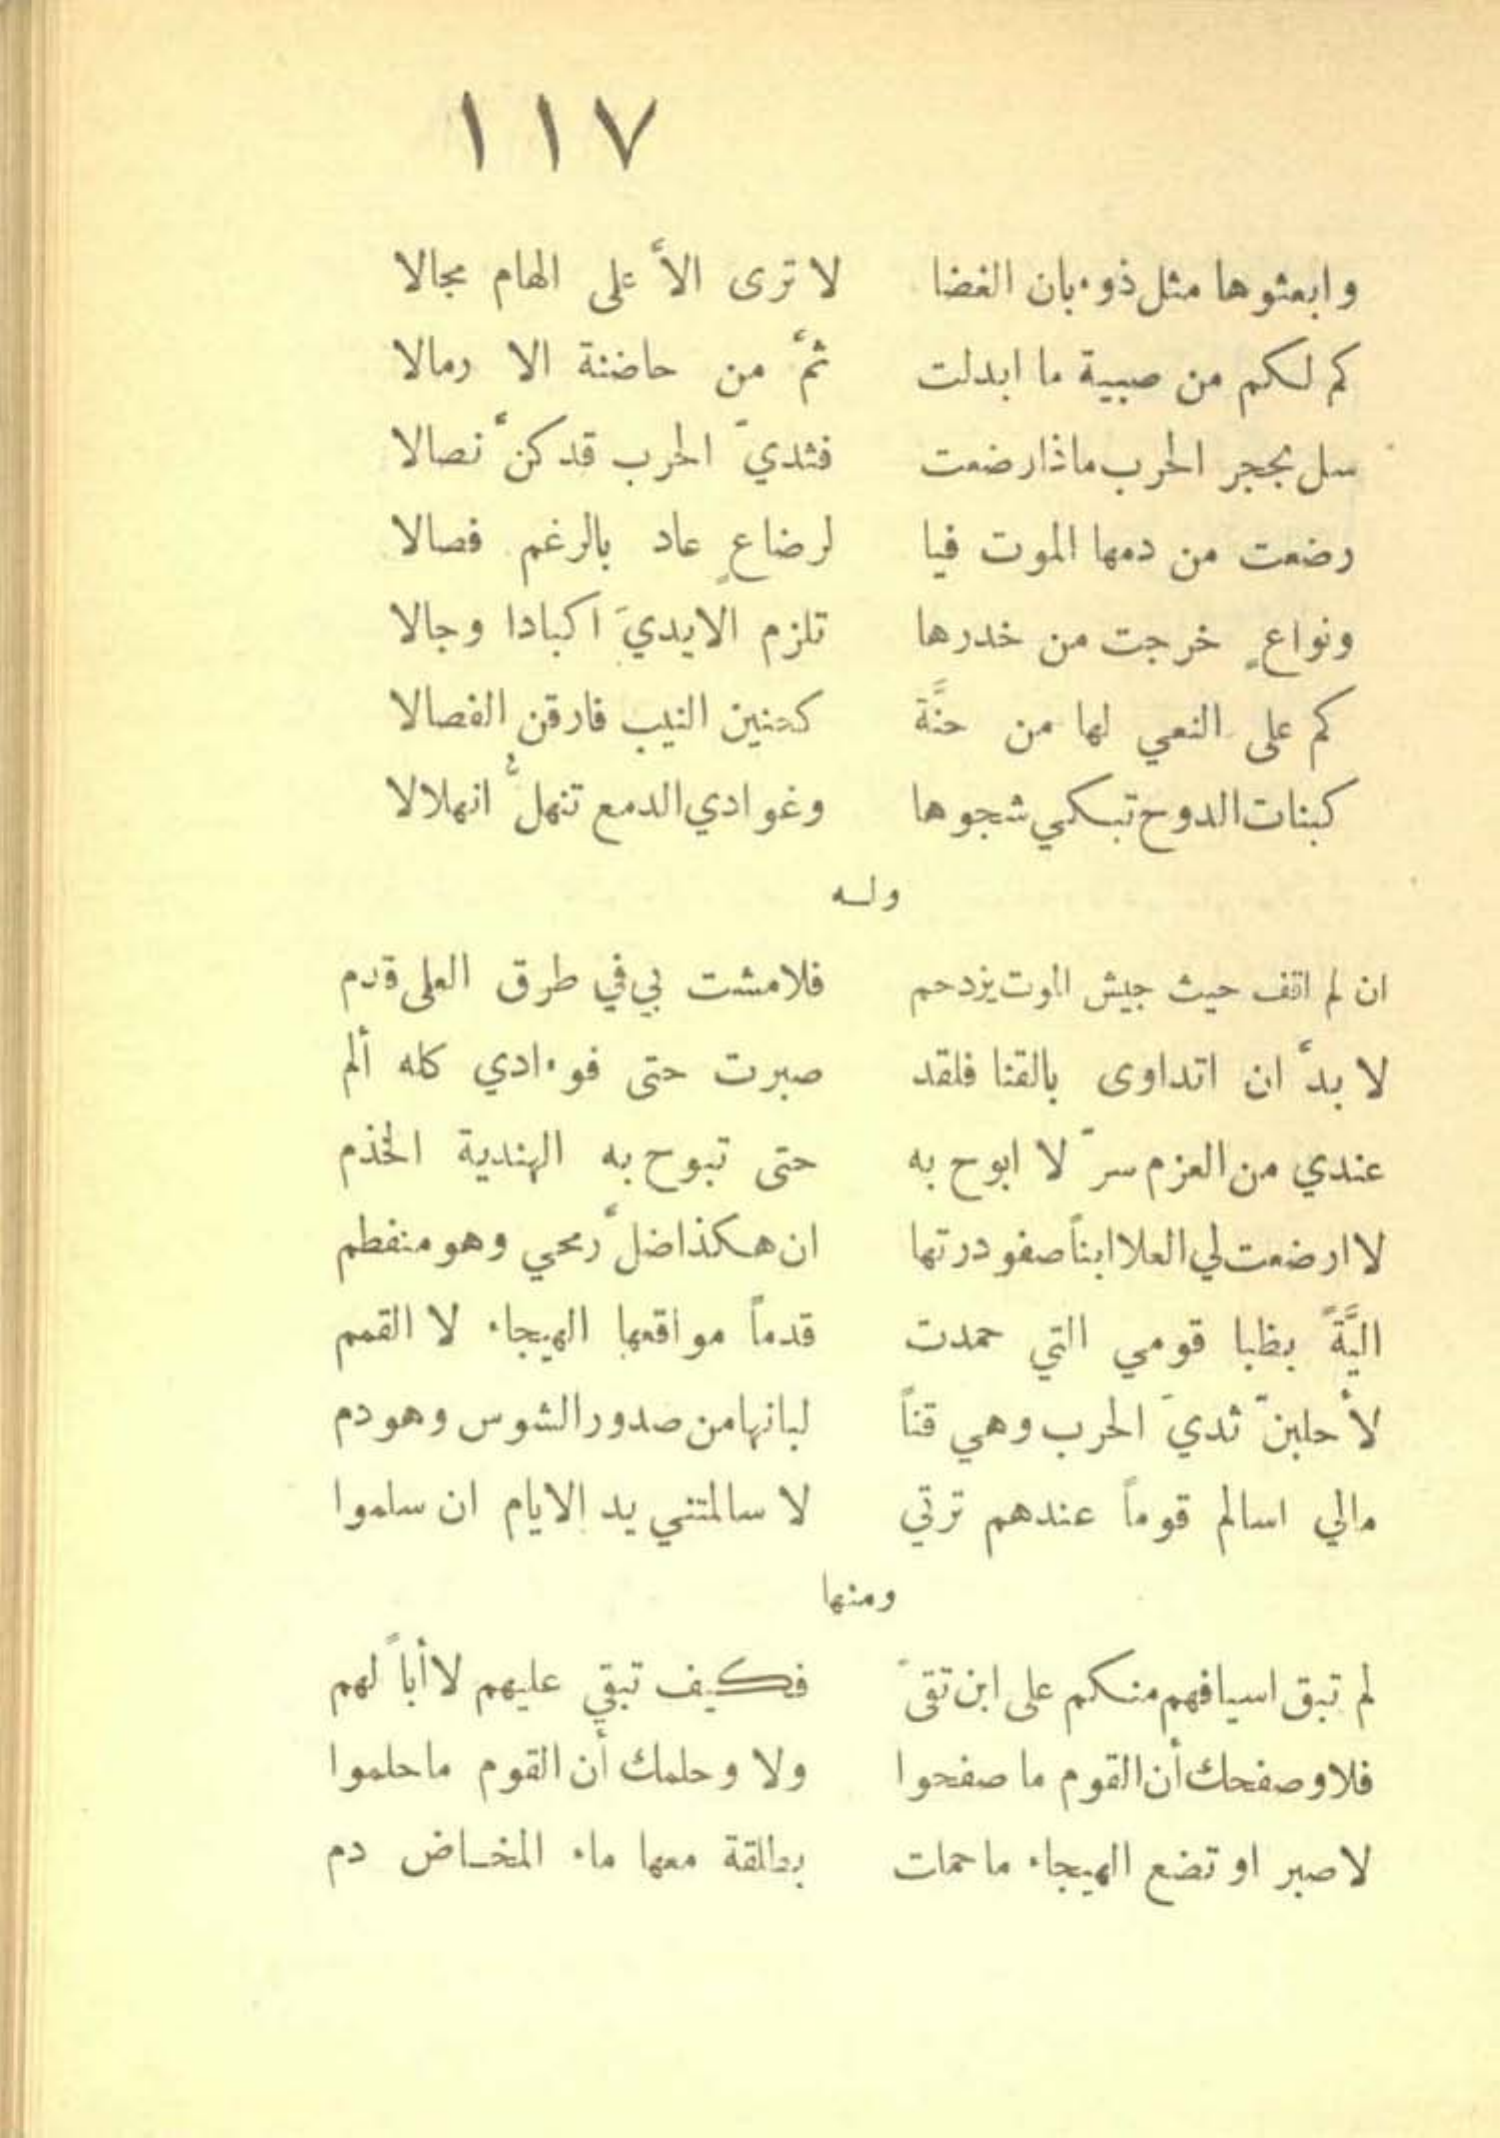 ١١٧
وابعثوها مثل ذوءبان الغضا لا ترى الاَّ على الهام مجالا
كم لكم من صبية ما ابدلت ثمَّ من حاضنة الا رمالا
سل بحجر الحرب ماذا رضعت فثديّ الحرب قد كنَّ نصالا
رضعت من دمها الموت فيا لرضاعٍ عاد بالرغم فصالا
ونواعٍ خرجت من خدرها تلزم الايديَ اكبادا وجالا
كم على النعي لها من حنَّة كحنين النيب فارقن الفصالا
كبنات الدوح تبكي شجوها وغوادي الدمع تنهلُّ انهلالا
وله
ان لم اقف حيث جيش الموت يزدحم فلا مشت بي في طرق العلى قدم
لا بدَّ ان اتداوى بالقنا فلقد صبرت حتى فوءادي كله ألم
عندي من العزم سرّ لا ابوح به حتى تبوح به الهندية الخذم
لا ارضعت لي العلا ابناً صفو درتها ان هكذا ضلَّ رمحي وهو منفطم
اليَّةً بظبا قومي التي حمدت قدماً مواقعها الهيجاء لا القمم
لأحلبنّ ثديَ الحرب وهي قناً لبانها من صدور الشوس وهو دم
مالي اسالم قوماً عندهم ترتي لا سالمتني يد الايام ان سلموا
ومنها
لم تبق اسيافهم منكم على ابن تقىً فكيف تبقي عليهم لا أباً لهم
فلا وصفحك أن القوم ما صفحوا ولا وحلمك أن القوم ما حلموا
لا صبر او تضع الهيجاء ما حملت بطلقة معها ماء المخاض دم